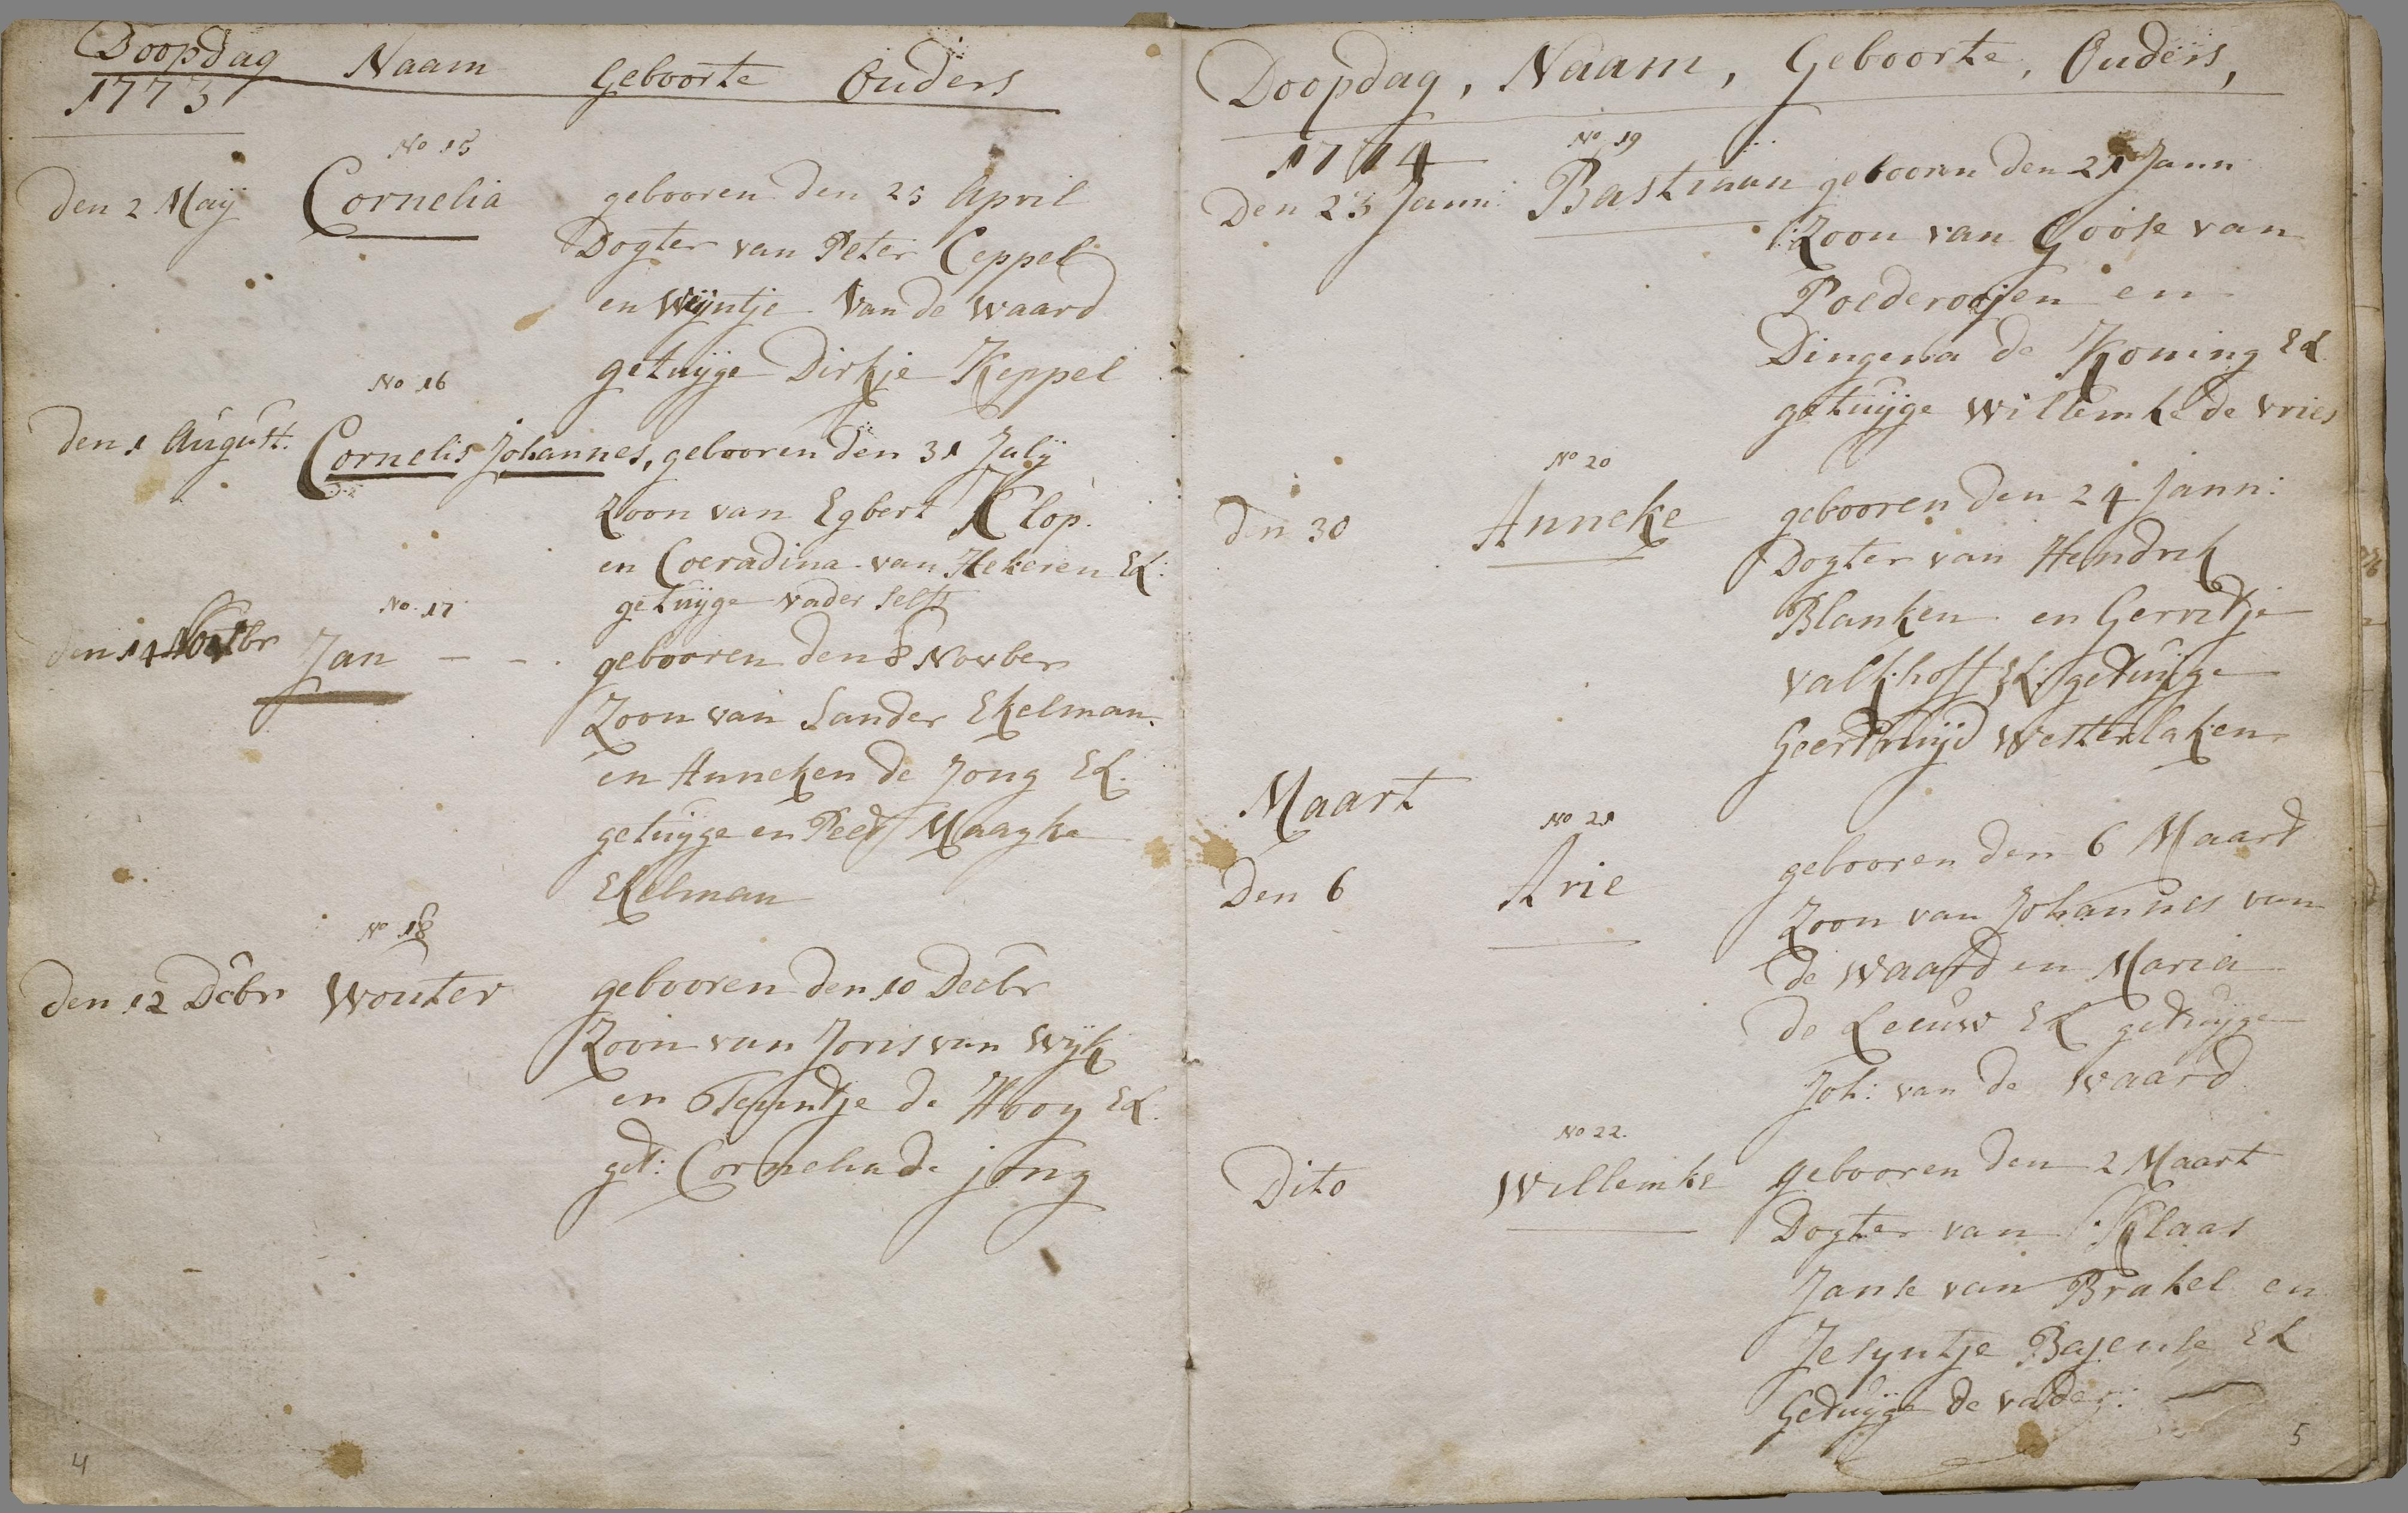 Doopdag Naam Geboorte Ouders
1773
No 15
Den 2 Maÿ Cornelia gebooren den 25 April
Dogter van Peter Ceppel
en Wÿntje Van de Waard
getuÿge Dirkje Keppel
No 16
den 1 August. Cornelis Johannes, gebooren den 31 Julÿ
Zoon van Egbert Klop.
en Coeradina van Hekeren El:
getuÿge vader selfs
No 17
den 14 Jan - - . gebooren den 8 Novber
Zoon van Sander Ekelman.
en Anneken de Jong El.
getuÿge en Peet Maayke
Ekelman
No 18
den 12 Dcbr Wouter gebooren den 10 Decbr
Zoon van Joris van Wÿk
en Teuntje de Hooy El.
get: Cornelia de jong
4
Doopdag, Naam, Geboorte, Ouders,
1774 No 19
Den 23 Jann: Bastiaan gebooren den 21 Jann
Zoon van Goose van
Poederoijen en
Dingena de Koning El.
getuÿge Willemke de Vries
No 20
den 30 Anneke gebooren den 24 Jann:
Dogter van Hendrik
Blanken en Gerritje
Valkhoff El: getuÿge
Geertruÿd Westerlaken
Maart
No 21
Den 6 Arie gebooren den 6 Maart
Zoon van Johannes van
de Waard en Maria
de Leeuw El getuÿge
Joh: van de Waard
No 22.
Dito Willemke gebooren den 2 Maart
Dogter van Klaas
Janse van Brakel en
Jesyntje Bajense El
Getuÿge de vader:
5